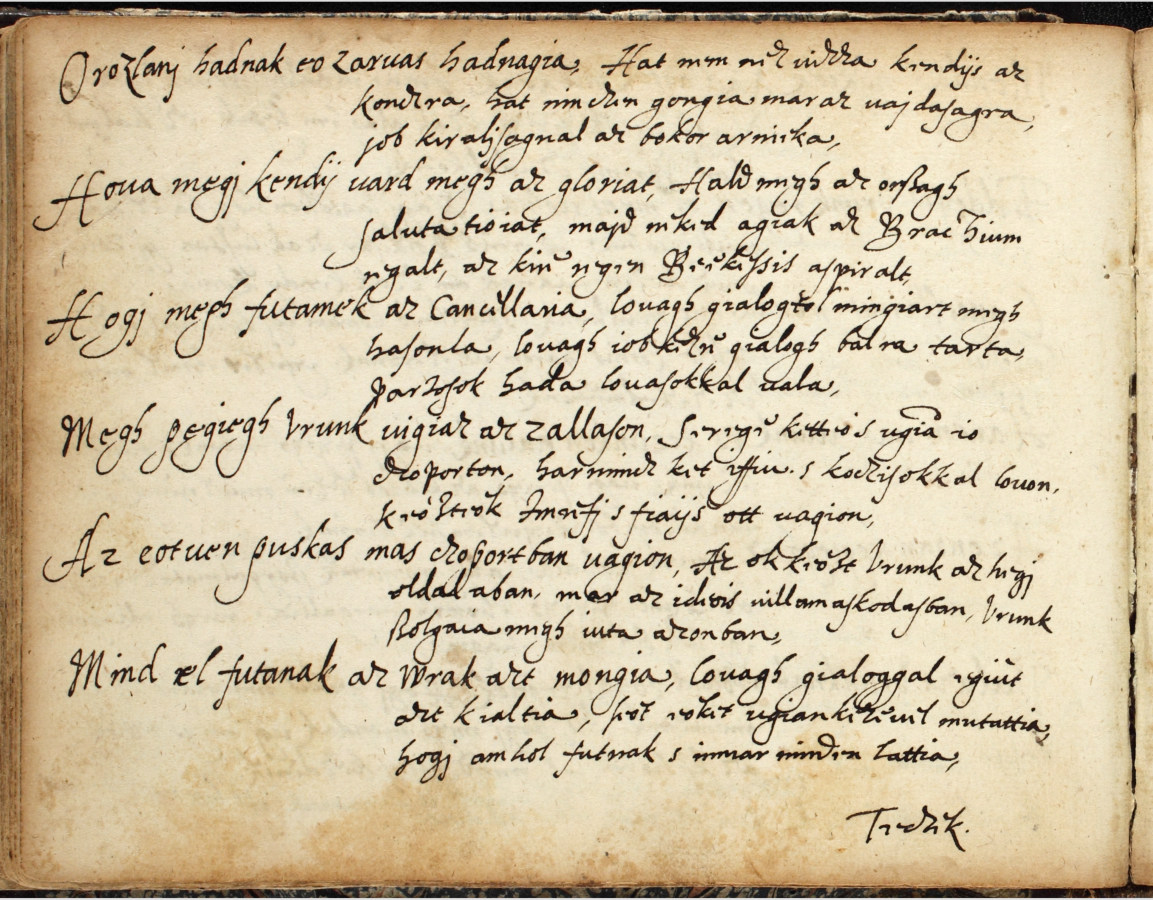 Orozlanj hadnak eo zaruas hadnagia, Hat nem nez uizza kendijs az
konczra, hat minden gongia mar az uajdasagra,
job kiraljsagnal az bokor arnieka,
Houa megj kendij uard megh az gloriat, Hald megh az orßagh
salutatioiat, majd neked agiak az Brachium
regalt, az kire regen Beekessis aspiralt,
Hogj megh futamek az Cancellaria, louagh gialogtol mingiart megh
hasonla, louagh iob kezre gialogh balra tarta,
partosok hada louasokkal uala,
Megh pegiegh Vrunk uigiaz az zallason, Serege ketteos ugian io
czoporton, harmincz ket iffiu s koczisokkal louon,
keoztteok Imrefj s fiaijs ott uagion,
Az eotuen puskas mas czoportban uagion, Az ok keozt Vrunk az hegj
oldalaban, mar az ideois uillamaskodasban, Vrunk
ßolgaia megh iuta azonban,
Mind el futanak az Wrak azt mongia, louagh gialoggal egiut
azt kialtia, seot eoket ugian kezeuel mutattia,
hogj amhol futnak s immar minden lattia,
Tieczek.